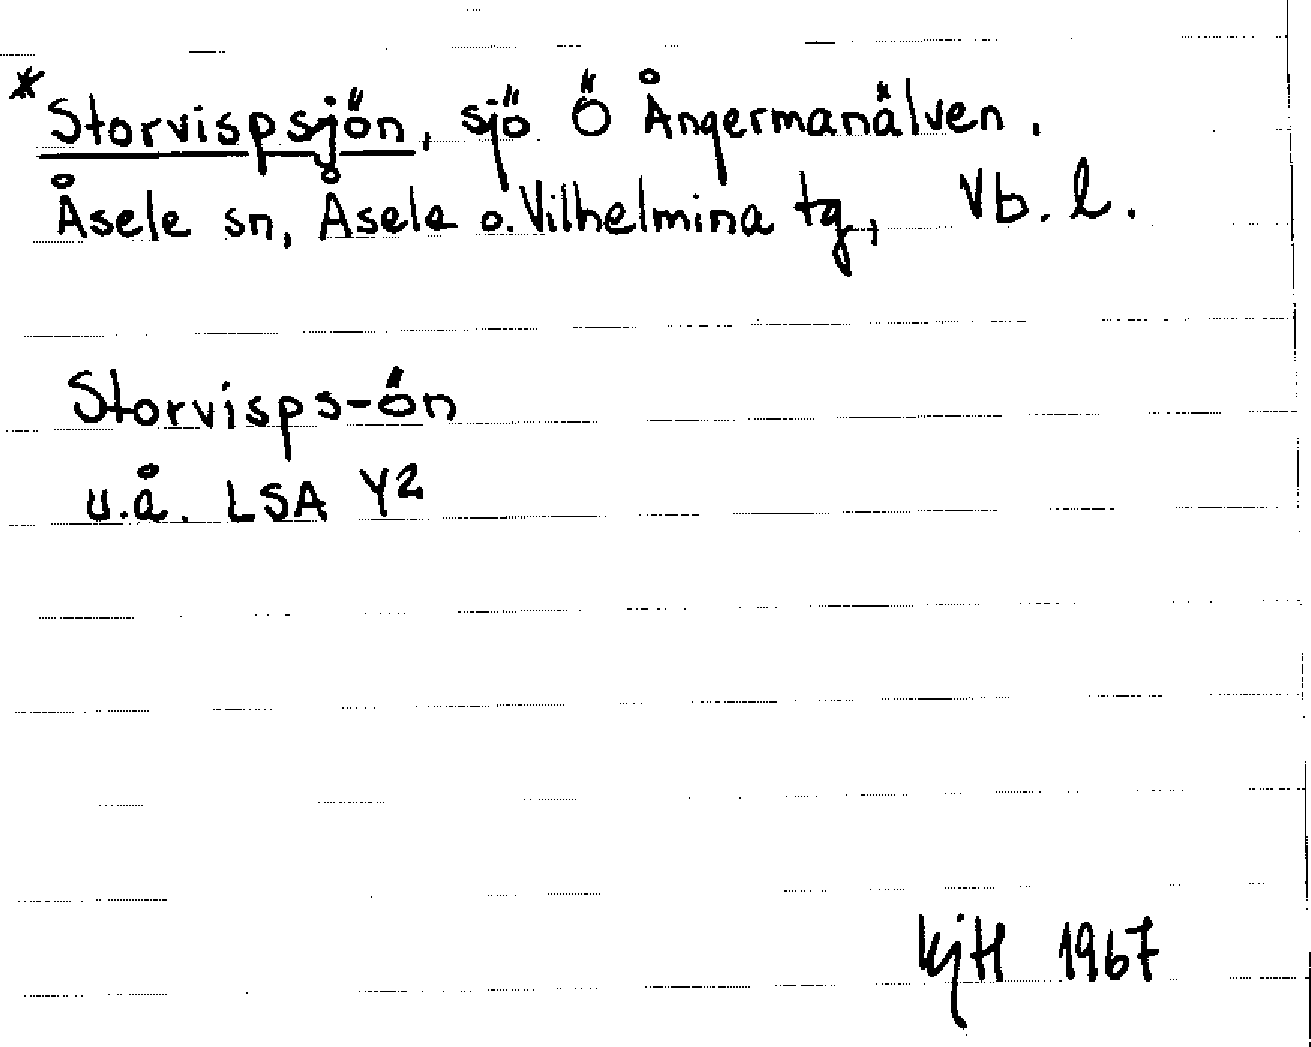 *Storvispsjön, sjö Ö Ångermanälven.
Åsele sn, Åsele o. Vilhelmina tg, Vb. l.
Storvisps-ön
u.å. LSA Y2
KjH 1967